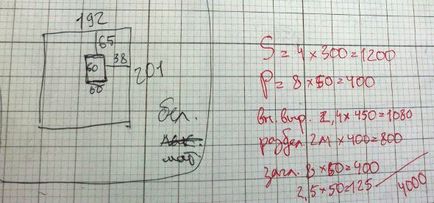 192
65
38
60
60
201
бел.
мат
S = 4 x 300 = 1200
P = 8 x 50 = 400
вн. выр. 2,4 x 450 = 1080
раздел. 2м x 400 = 800
загл. 8 x 50 = 400
2,5 x 50 = 125
4000